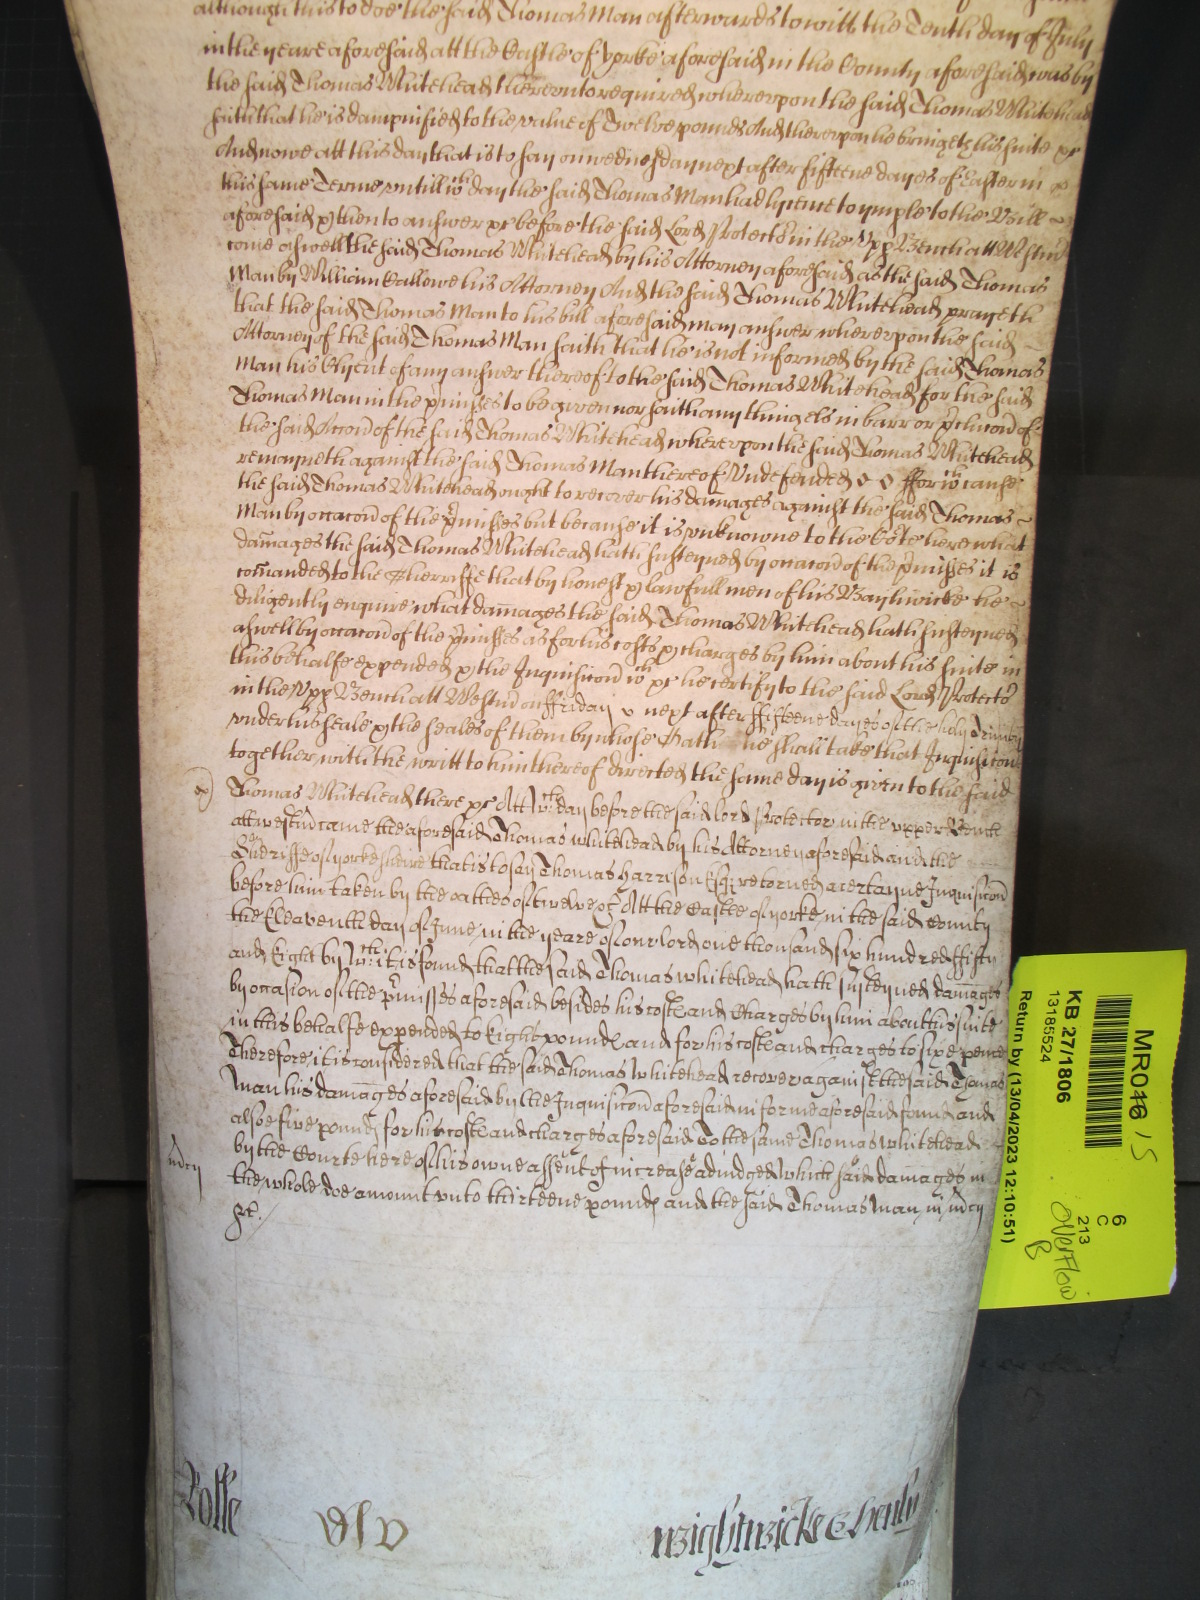 although this to doe the said Thomas Man afterwards to witt the Tenth day of July
in the yeare aforesaid att the Castle of Yorke aforesaid in the County aforesaid was by
the said Thomas Whitehead therevnto required wherevpon the said Thomas Whitehead
saith that he is dampnified to the value of Twelve pounds And therevpon he bringeth his suite &c
And nowe att this day that is to say on wednesday next after fifteene dayes of Easter in
this same Terme vntill wch day the said Thomas Man had lycence to imple to the Bill
aforesaid & then to answer &c before the said Lord Protector in the Vpp Bench att Westm
come aswell the said Thomas Whitehead by his Attorney aforesaid as the said Thomas
Man by William Gallowe his Attorney And the said Thomas Whitehead prayeth
that the said Thomas Man to his bill aforesaid may answer wherevpon the said
Attorney of the said Thomas Man saith that he is not informed by the said Thomas
Man his Clyent of any answer thereof to the said Thomas Whitehead for the said
Thomas Man in the pmisses to be given nor saith any thinge els in barr or pclucon of
the said Accon of the said Thomas Whitehead wherevpon the said Thomas Whitehead
remayneth against the said Thomas Man thereof Vndefended ffor wch cause
the said Thomas Whitehead ought to recover his damages against the said Thomas
Man by occacon of the pmisses but because it is vnknowne to the Cote here what
damages the said Thomas Whitehead hath susteyned by occacon of the pmisses it is
comanded to the Sherriffe that by honest & lawfull men of his Bayliwicke he
diligently enquire what damages the said Thomas Whitehead hath susteyned
aswell by occacon of the pmisses as for his costs & charges by him about his suite in
this behalfe expended & the Inquisicon wch &c he certify to the said Lord Protector
in the Vpp Bench att Westm on ffriday next after ffifteene dayes of the holy Trinity
vnder his seale & the seales of them by whose Oath he shall take that Inquisicon
together with the writt to him thereof directed the same day is given to the said
Thomas Whitehead there &c Att wch day before the said lord Protector in the vpper Bench
att westm came the aforesaid Thomas whitehead by his Attorney aforesaid and the
Sherriffe of yorkesheire that is to say Thomas Harrison Esqr retorned a certayne Inquisicon
before him taken by the oathes of twelve &c Att the Castle of yorke in the said County
the Eleaventh day of June in the yeare of our lord one thousand six hundred ffifty
and Eight by wch it is found that the said Thomas whitehead hath susteyned damages
by occasion of the pmisses aforesaid besides his costs and Charges by him about his suite
in this behalfe expended to Eight pounds and for his costs and charges to sixe pence
Therefore it is considered that the said Thomas Whitehead recover against the said Thomas
Man his damages aforesaid by the Inquisicon aforesaid in forme aforesaid found and
alsoe five pounds for his costs and charges aforesaid To the same Thomas whitehead
by the Courte here of his owne assent of increase adiudged Which said damages in
the whole doe amount vnto thirteene pounds and the said Thomas Man in mcy
&c.
mcy
Rolle
Wightwicke & Henly
MR046 / S
KB 27/1806
13185524
Return by (13/04/2023 12:10:51)
6
C
213
Overflow
B